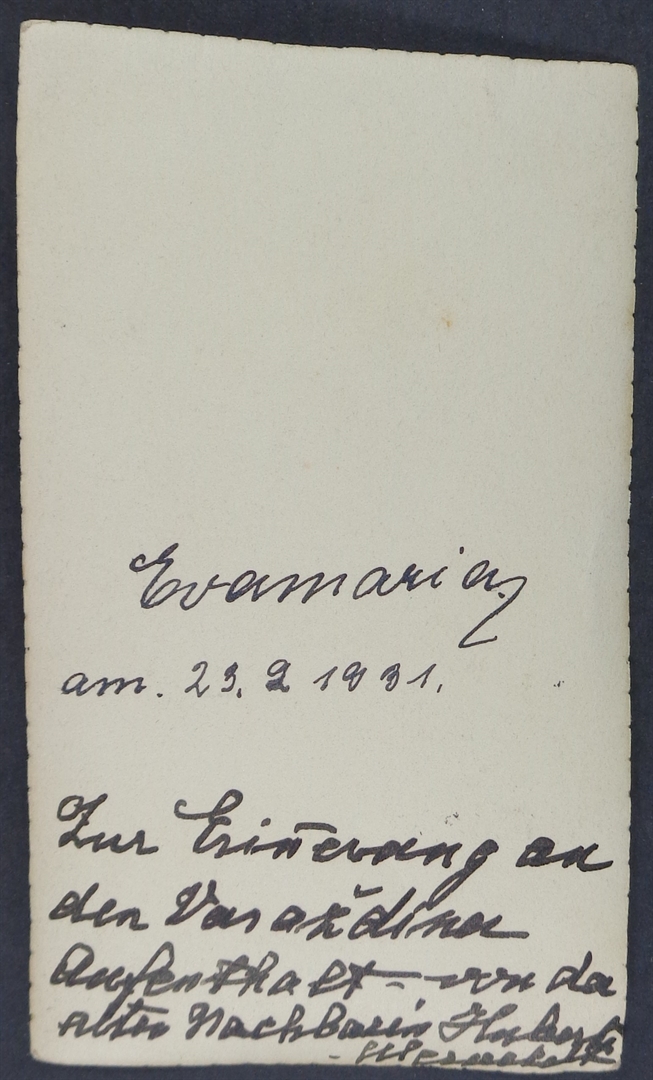 Evamaria
am. 23. 2 1931.
Zur Erin̄erung an
den Varaždiner
Aufenthalt – von der
alten Nachbarin